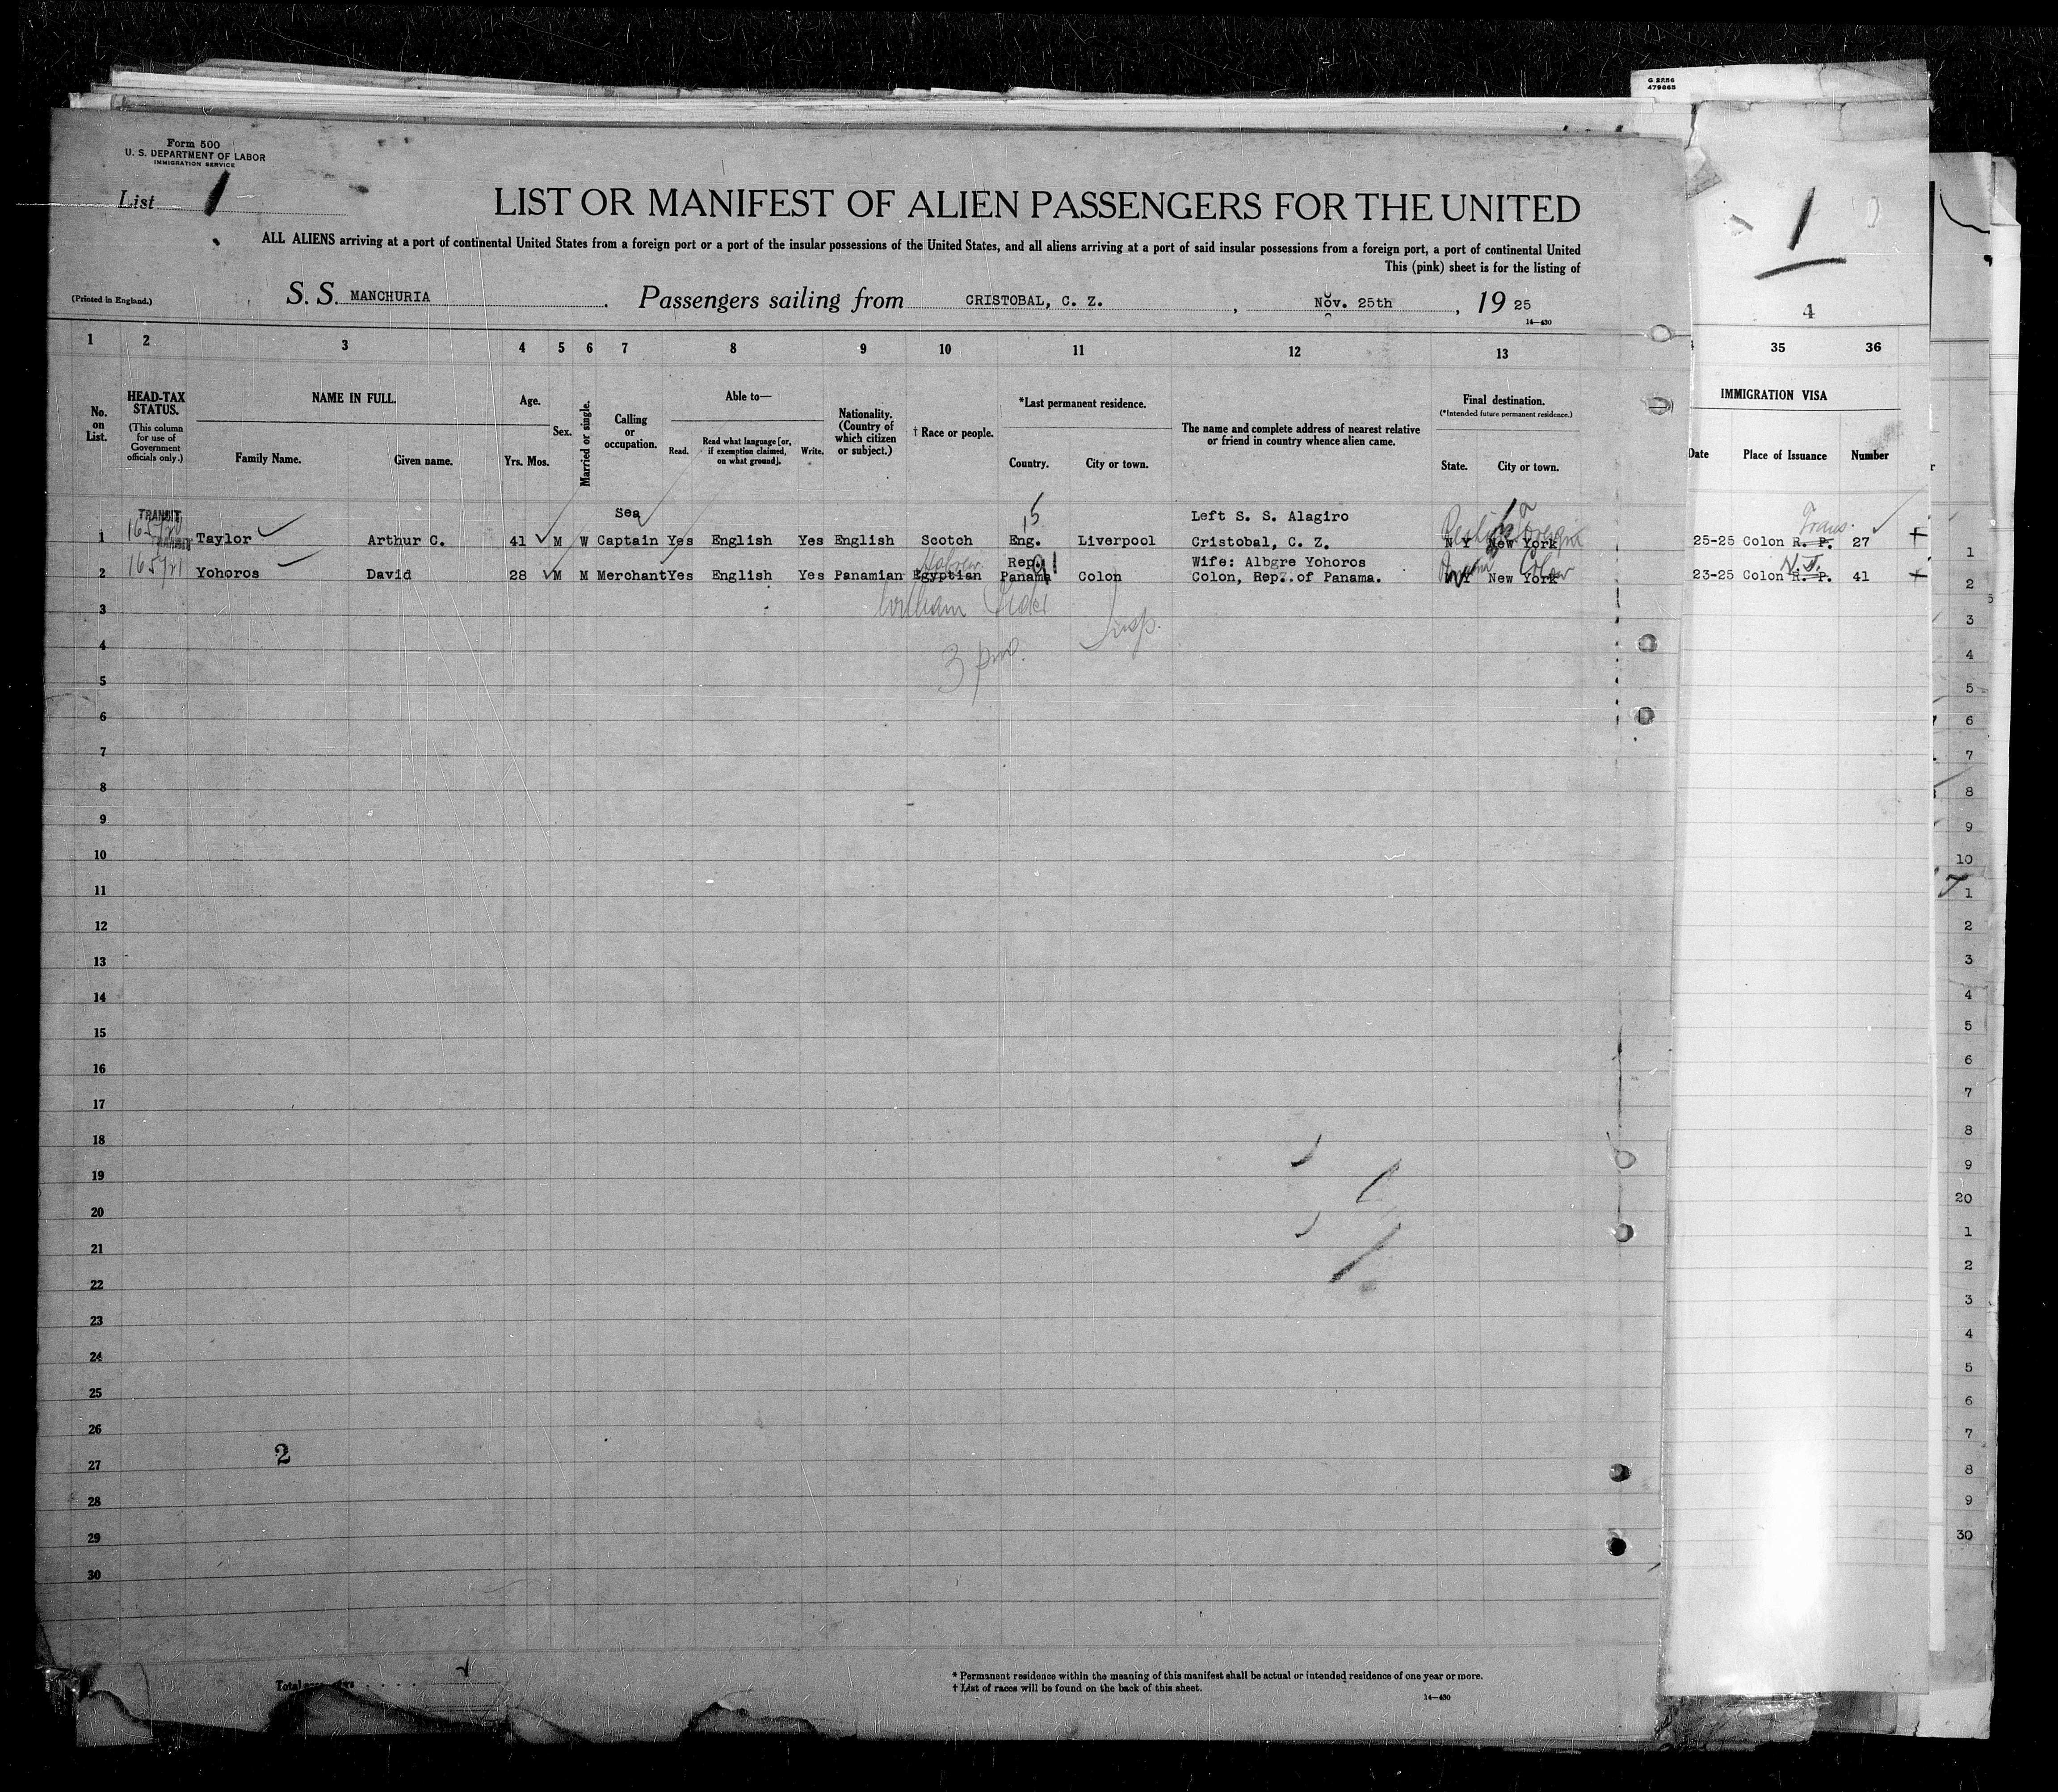 G 2256
479665
Form 500
U. S. DEPARTMENT OF LABOR
IMMIGRATION SERVICE
List 1
LIST OR MANIFEST OF ALIEN PASSENGERS FOR THE UNITED
ALL ALIENS arriving at a port of continental United States from a foreign port or a port of the insular possessions of the United States, and all aliens arriving at a port of said insular possessions from a foreign port, a port of continental United
This (pink) sheet is for the listing of
(Printed in England.)
S. S. MANCHURIA. Passengers sailing from CRISTOBAL, C. Z., Nov. 25th, 19 25
14—430
1
4
1 2 3 4 5 6 7 8 9 10 11 12 13 35 36
No. on List.
HEAD-TAX STATUS.
(This column for use of Government officials only.)
NAME IN FULL.
Family Name. Given name.
Age.
Yrs. Mos.
Sex.
Married or single.
Calling or occupation.
Able to—
Read. Read what language [or, if exemption claimed, on what ground]. Write.
Nationality. (Country of which citizen or subject.)
† Race or people.
*Last permanent residence.
Country. City or town.
The name and complete address of nearest relative or friend in country whence alien came.
Final destination.
(*Intended future permanent residence.)
State. City or town.
IMMIGRATION VISA
Date Place of Issuance Number
TRANSIT Sea 15 Left S. S. Alagiro Trans.
1 Taylor Arthur C. 41 M W Captain Yes English Yes English Scotch Eng. Liverpool Cristobal, C. Z. N Y New York 25-25 Colon R. P. 27
TRANSIT
Hebrew Rep. 91 Wife: Albgre Yohoros
2 Yohoros David 28 M M Merchant Yes English Yes Panamian Egyptian Panama Colon Colon, Rep. of Panama. NY New York 23-25 Colon R. P. 41
3
Insp.
4
3 pm.
5
6
7
8
9
10
11
12
13
14
15
16
17
18
19
20
21
22
23
24
25
26
2
27
28
29
30
1
2
3
4
5
6
7
8
9
10
1
2
3
4
5
6
7
8
9
20
1
2
3
4
5
6
7
8
9
30
Total
* Permanent residence within the meaning of this manifest shall be actual or intended residence of one year or more.
† List of races will be found on the back of this sheet.
14—430